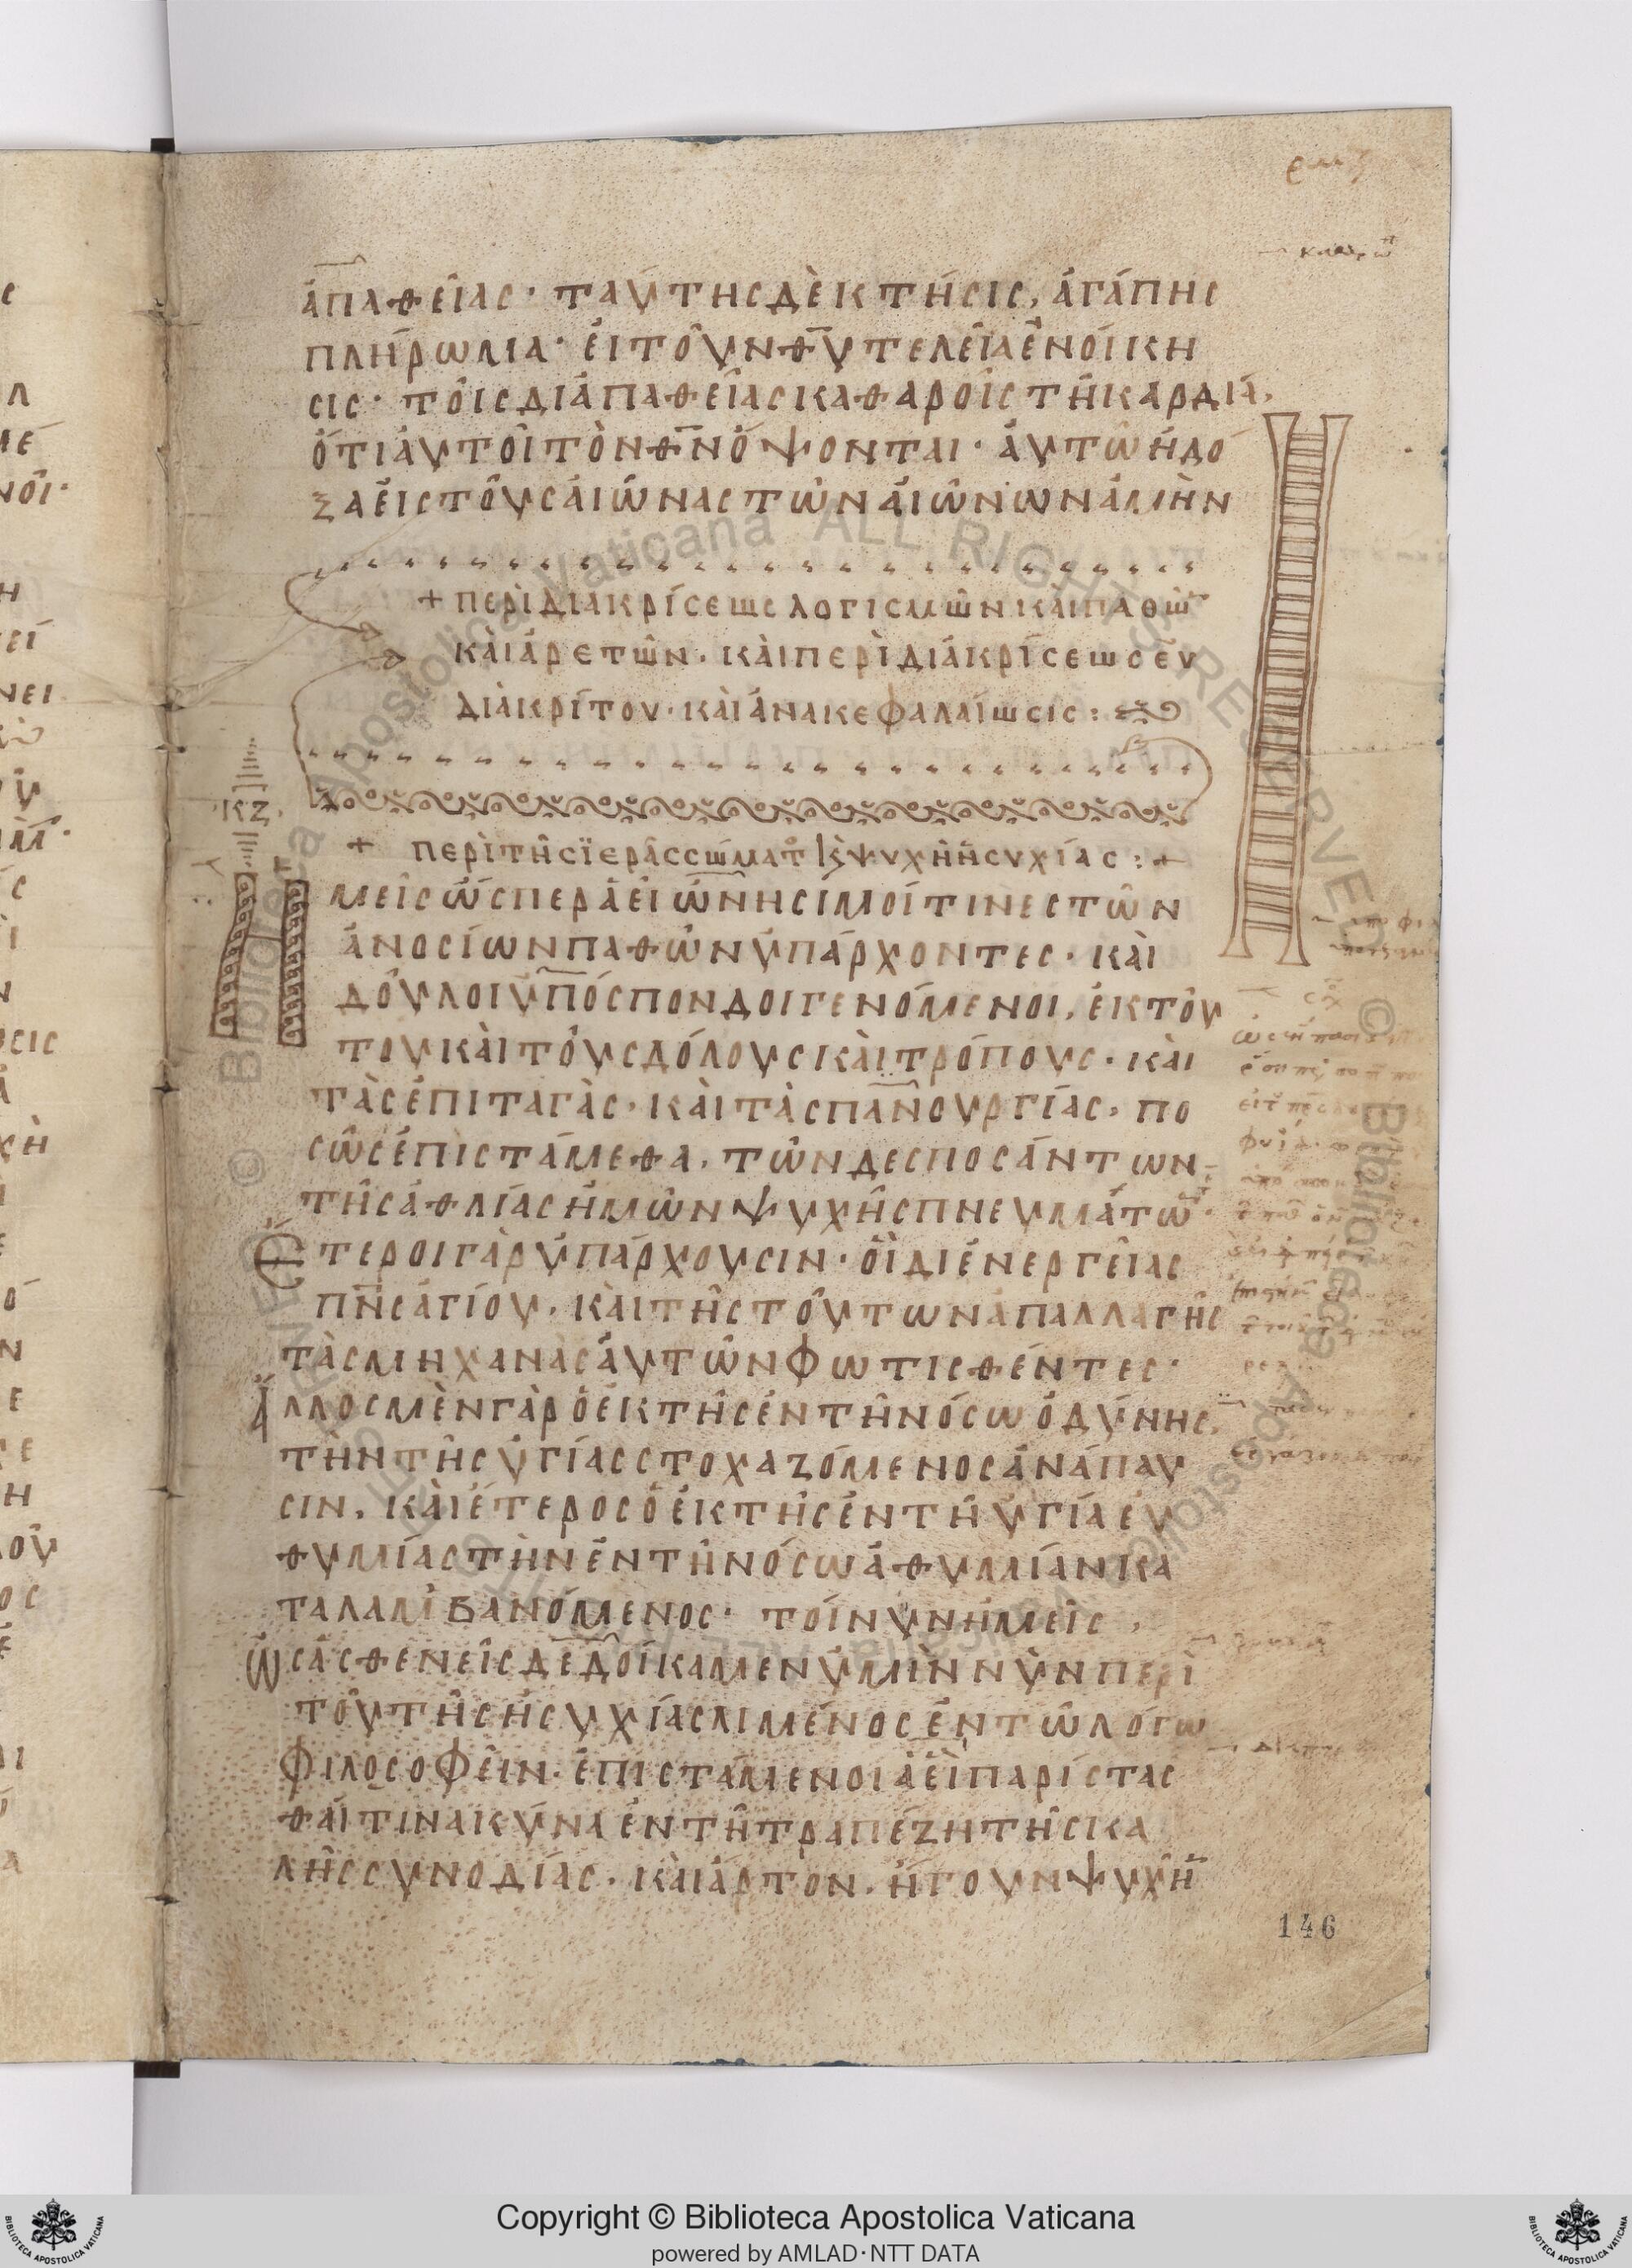 ἀπαθείας· ταύτης δὲ κτήσις, ἀγάπης
πλήρωμα· εἴτουν θ̅υ̅ τελεία ἐνοίκη
σις· τοῖς δι ἀπαθείας καθαροῖς τῆ καρδία,
ὅτι αὐτοὶ τὸν θ̅ν̅ ὄψονται· αὐτῶ ἡ δό
ξα εἰς τοὺς αἰῶνας τῶν αἰώνων ἀμὴν
+ περὶ διακρίσεως λογισμῶν καὶ παθῶ
καὶ ἀρετῶν· καὶ περὶ διακρίσεως εὐ
διακρίτου· καὶ ἀνακεφαλαίωσις :
ΚΖ
+ περὶ τῆς ϊερᾶς σώματ ϗ ψυχῆ ἡσυχίας : +
Ημεῖς ὥσπερ ἀεὶ ὠνήσιμοί τινες τῶν
ἀνοσίων παθῶν ὑπάρχοντες· καὶ
δοῦλοι ὑπόσπονδοι γενόμενοι, ἐκ τού
του καὶ τοὺς δόλους καὶ τρόπους· καὶ
τὰς ἐπιταγὰς· καὶ τὰς πανουργίας, πο
σῶς ἐπιστάμεθα, τῶν δεσποσάντων
τῆς ἀθλίας ἡμῶν ψυχῆς πνευμάτω·
Ἕτεροι γὰρ ὑπάρχουσιν· οἳ δι ἐνεργείας
π̅ν̅ς̅ ἁγίου, καὶ τῆς τούτων ἀπαλλαγῆς
τὰς μηχανὰς αὐτῶν φωτισθέντες·
Ἄλλος μὲν γὰρ ὁ ἐκ τῆς ἐν τῆ νόσω ὀδύνης,
τὴν τῆς ὑγίας στοχαζόμενος ἀνάπαυ
σιν, καὶ ἕτερος ὁ ἐκ τῆς ἐν τῆ ὑγία εὐ
θυμίας τὴν ἐν τῆ νόσω ἀθυμίαν κα
ταλαμβανόμενος· τοίνυν ἡμεῖς,
Ὡς ἀσθενεῖς δεδοίκαμεν ὑμῖν νῦν περὶ
τοῦ τῆς ἡσυχίας λιμένος ἐν τῶ λόγω
φιλοσοφεῖν· ἐπιστάμενοι ἀεὶ παρίστας
θαί τινα κύνα ἐν τῆ τραπέζη τῆς κα
λῆς συνοδίας· καὶ ἄρτον, ἤγουν ψυχὴ
146
Copyright © Biblioteca Apostolica Vaticana
powered by AMLAD·NTT DATA